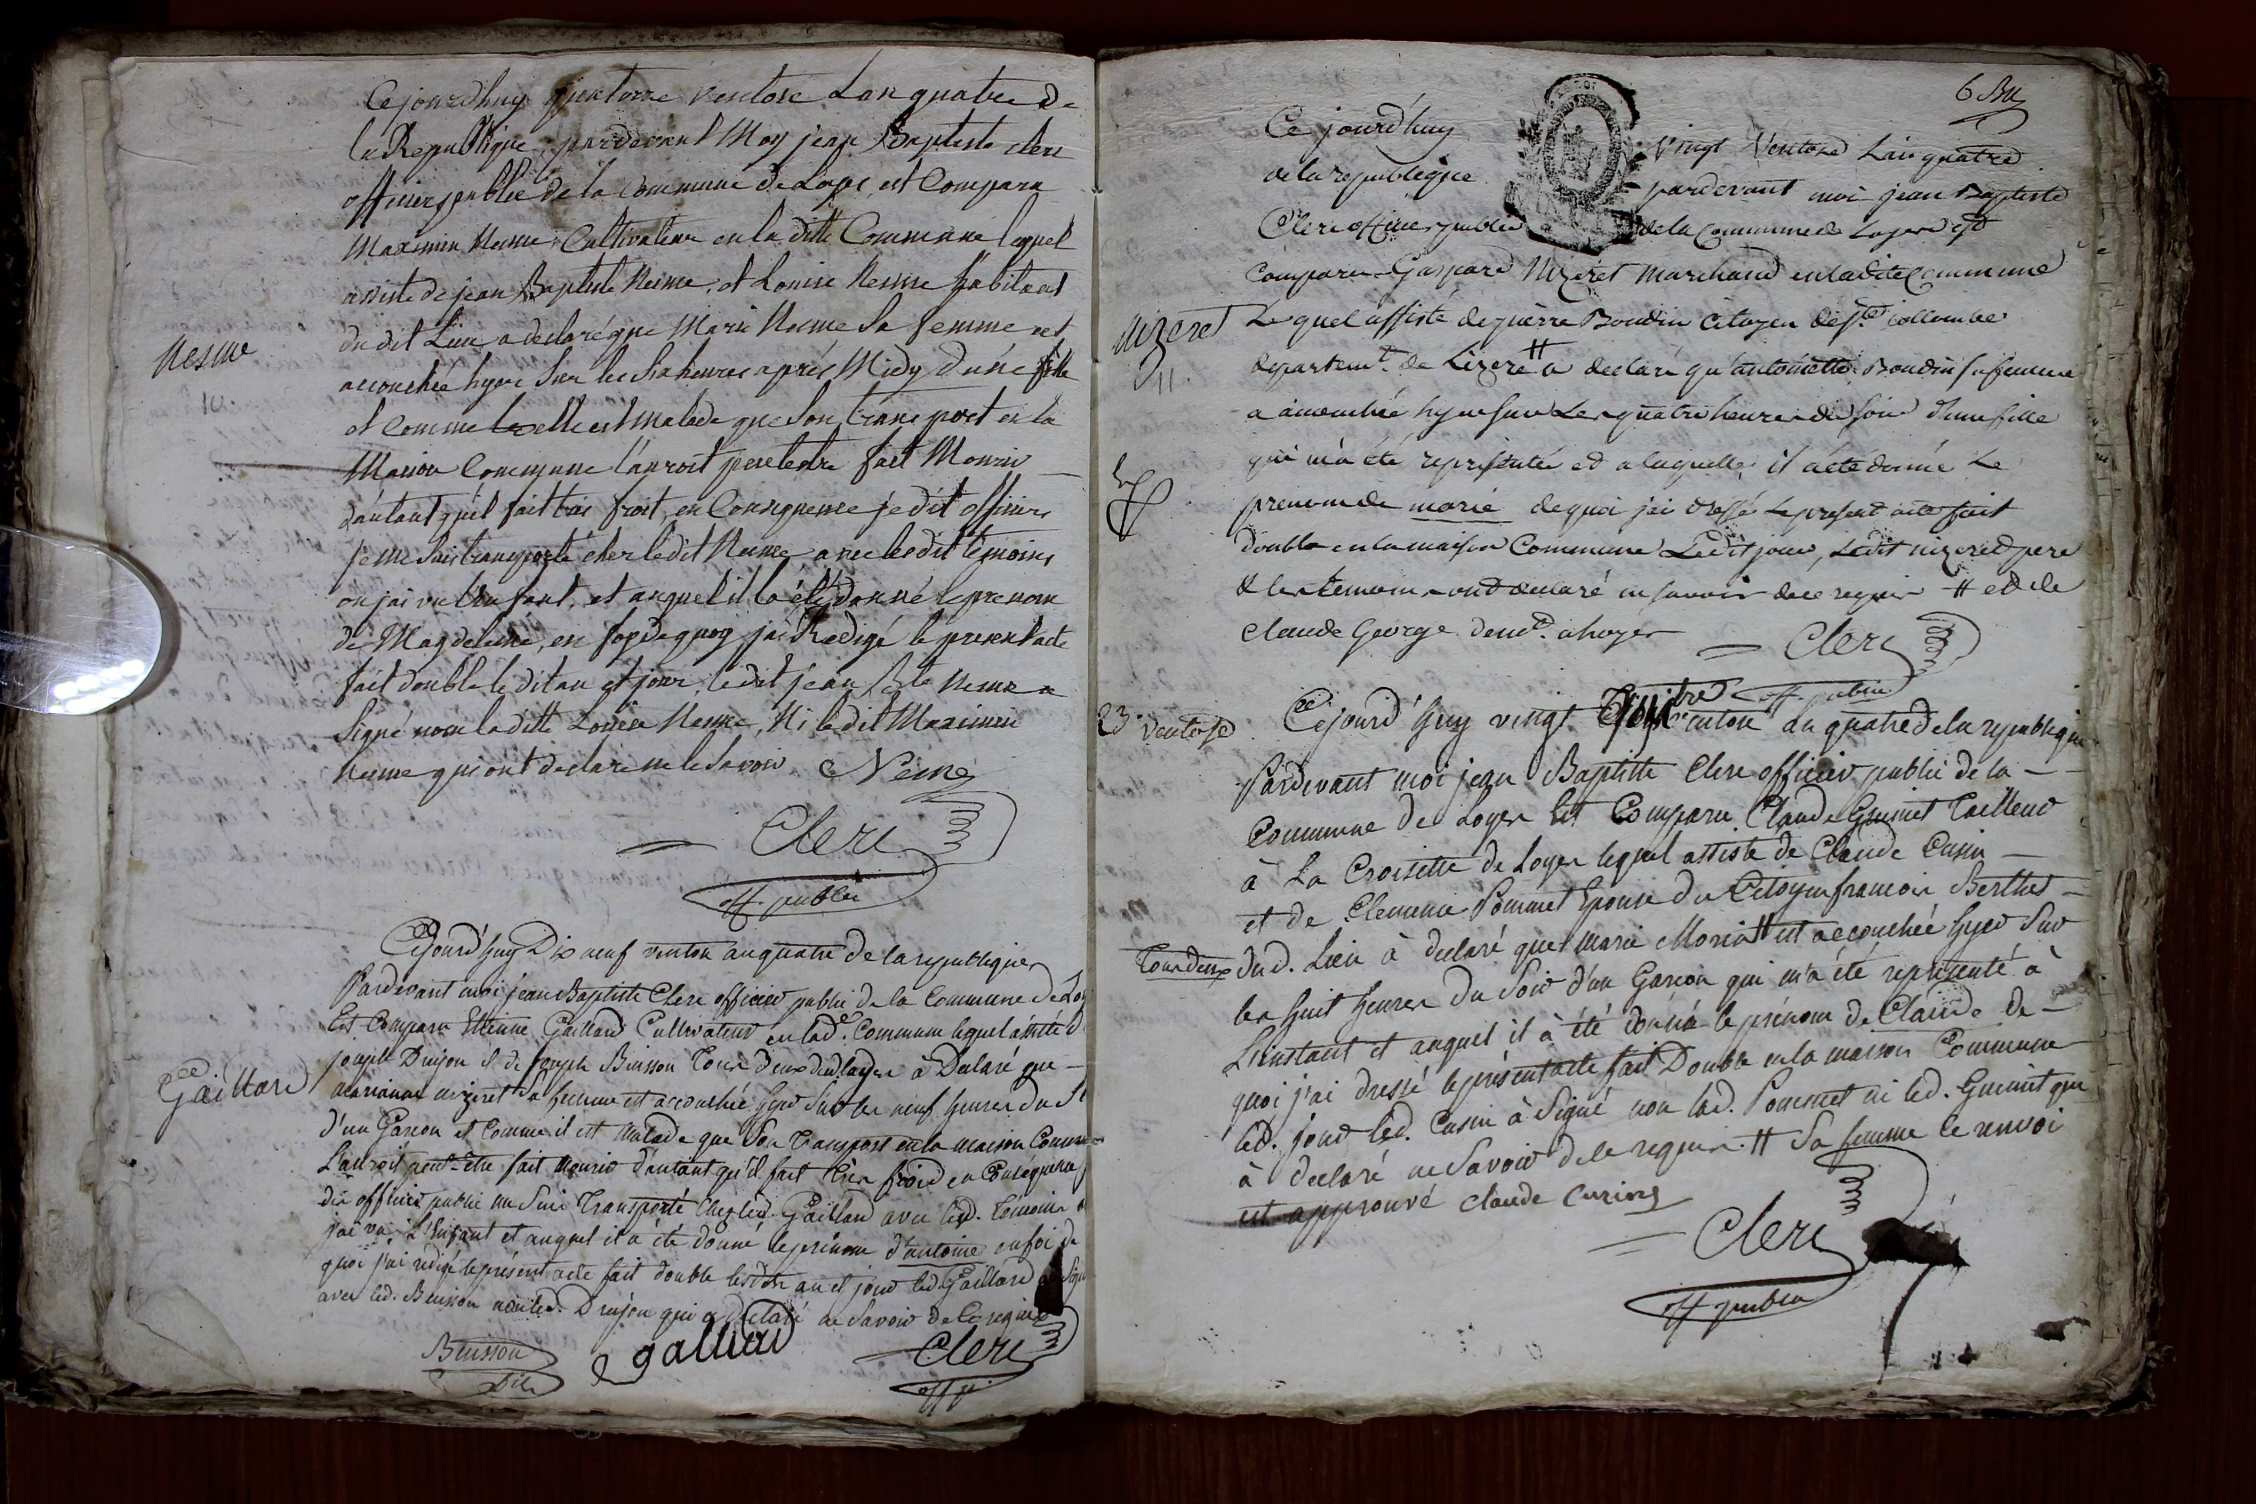 Cejourdhuy quatorze ventose Lan quatre de
la Republique, pardevant Moy jean Baptiste clerc
officier publie de la Commune de Loyes, est Comparu
Maximin Nesme Cultivateur en la ditte Commune lequel
assisté de jean Baptiste Nesme, et Louise Nesme habitant
du dit Lieu a declaré que Marie Nesme Sa femme est
accouchée hyer Sur les heures aprés Midy d'une fille
et comme elle est malade que Son transport en la
Maison Commune l'auroit peutestre fait Mourir
Nesme
10.
d'autant qu'il fait très froit, en Consequence je dit officier
je me suis transporté cher ledit Nesme, avec lesdit temoins
ou jai vu l'enfant, et auquel il la été donné le prenom
de Magdeleine, en foy de quoy j'ai Redigé le present acte
fait double le dit an et jour, le dit jean Bte Nesme a
Signé non la ditte Louise Nesme, Ni le dit Maximin
Nesme qui ont declaré ne le Savoir Nesme
Clerc
off. publie
Cejourd'huy Dix neuf ventose an quatre de la republique
Pardevant moi jean Baptiste Clerc officier public de la Commune de Loy
Est Comparu Etienne Gaillard Cultivateur en lade. Commune lequel assisté d
joseph Drujon & de joseph Buisson Tous deux dud. loyer à Declaré que
Gaillard
marianne nizeret Sa femme est accouchée hyer Sur les neuf heures du S
d'un Garcon et Comme il est malade que Son transport en la maison Commu
L'auroit peut-être fait mourir d'autant qu'il fait très froid en Conséquence j
dit officier public me Suis Transporté chez led. Gaillard avec lesd. Témoins o
j'ai vu L'Enfant et auquel il à été donné le prénom d'antoine en foi de
quoi j'ai redigé le présent acte fait double lesdits an et jour led. Gaillard a Signé
avec led. Buisson non led. Drujon qui a Declaré ne Savoir de ce requis
Buisson
gallierd
Clerc
off p.
6
Ce jourd'huy vingt Ventose Lan quatre
de la republique pardevant moi jean Baptiste
Clerc officier public de la Commune de Loyer est
Comparu Gaspard Nizeret Marchand en ladite Commune
nizeret
11.
Lequel assisté de pierre Boudin Citoyen de Ste. collombe
departemt. de Lizere # a declaré qu'antoinette Boudin sa femme
a accouchée hyer sur Les quatre heures du soir d'une fille
qui m'a été représentée et a laquelle il a été donné Le
prenom de marie de quoi j'ai dressé Le present acte fait
double en la maison Commune Ledit jour, Ledit nizeret pere
& les temoins ont declaré ne savoir de ce requis # et de
Claude George demt. a loyer
Clerc
off. public
23. ventose
Cejourd'huy vingt ventose an quatre de la republique
Pardevant moi jean Baptiste Clerc officier public de la
Commune de Loyer Est Comparu Claude Guinet Tailleur
à La Croisette de Loyer lequel assisté de Claude Cusin
et de Clemence Pommet Epouse du Citoyen francois Berthet
Tous deux dud. Lieu à declaré que marie Morin # est accouchée hyer Sur
les huit heures du Soir d'un Garcon qui m'a été représenté à
L'instant et auquel il à été donné le prénom de Claude de
quoi j'ai dressé le présent acte fait Double en la maison Commune
led. jour led. Cusin à Signé non lad. Pommet ni led. Guinet que
à declaré ne Savoir de ce requis. # Sa femme le renvoi
est approuvé Claude Curing
Clerc
off public